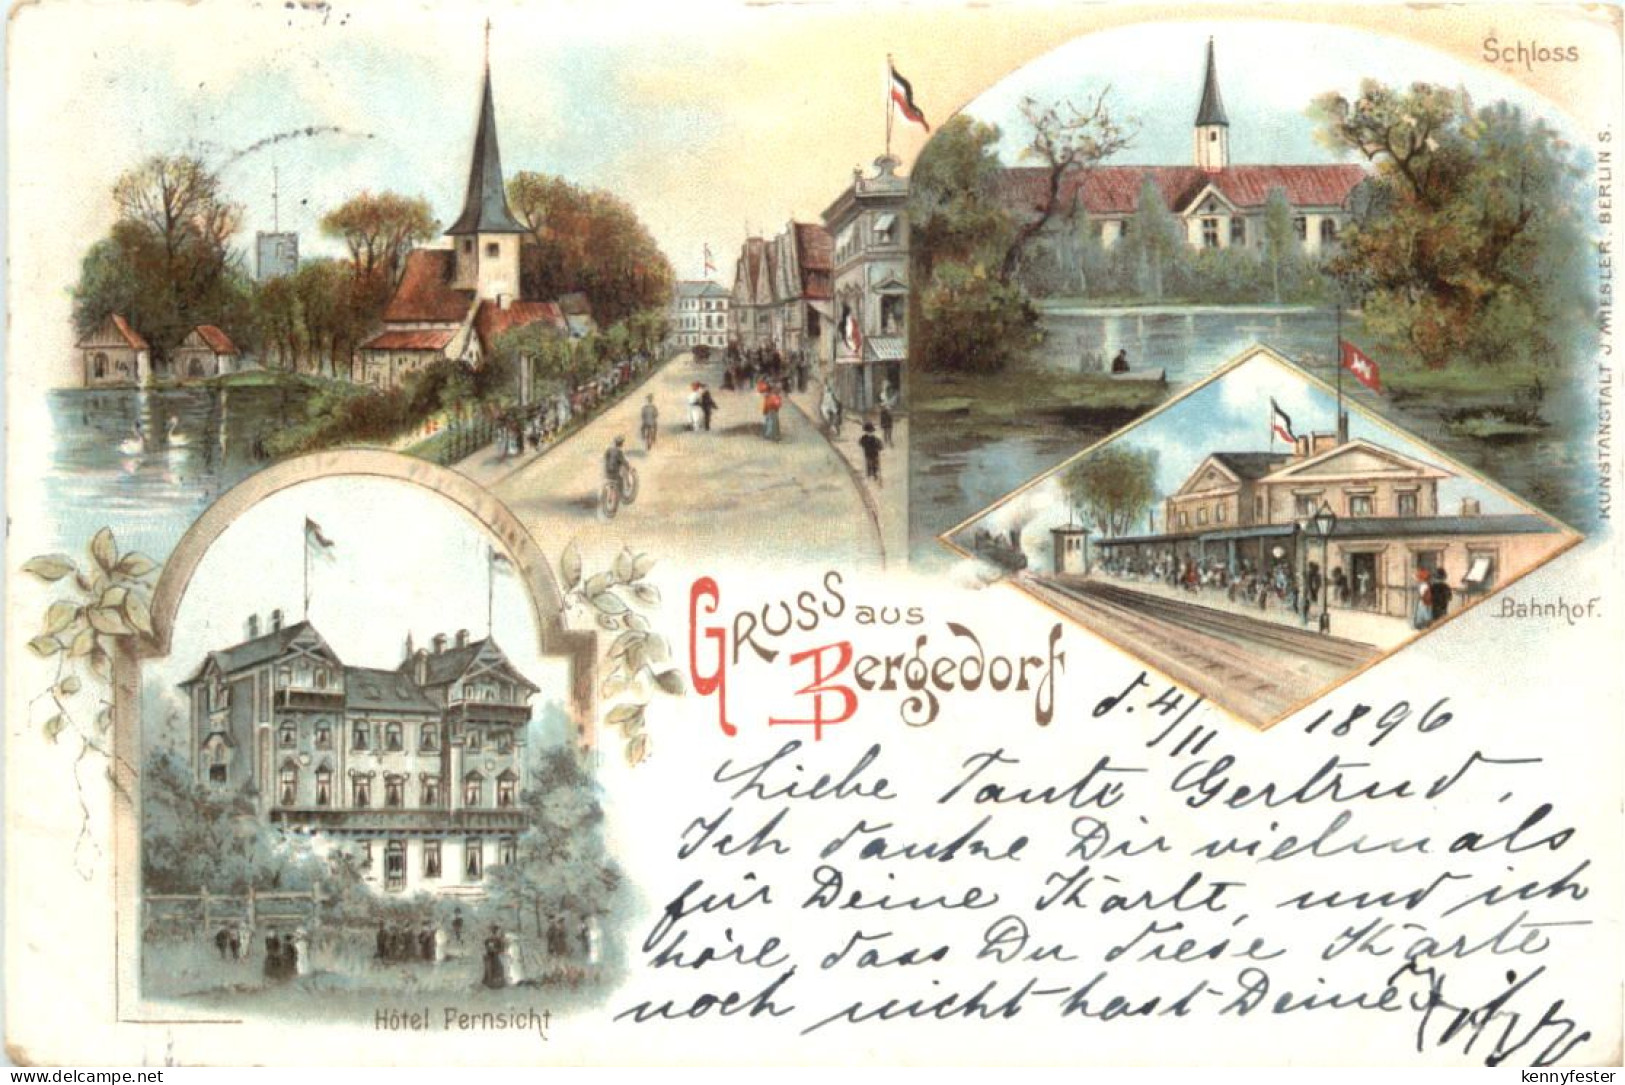 Schloss
KUNSTANSTALT J. MIESLER, BERLIN S.
Bahnhof.
GRUSS aus
Bergedorf
Hôtel Fernsicht
d. 4/11 1896
Liebe Tante Gertrud,
Ich danke Dir vielmals
für Deine Karte, und ich
höre, dass Du diese Karte
noch nicht hast. Deine
delcampe.net
kennyfester